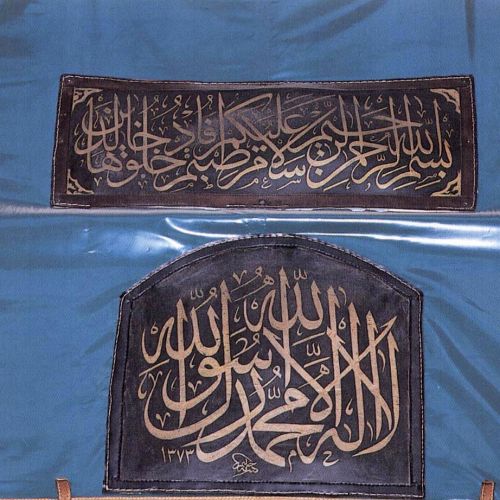 بسم الله الرحمن الرحيم سلام عليكم طبتم فادخلوها خالدين
لا اله الا الله محمد رسول الله
١٣٧٣